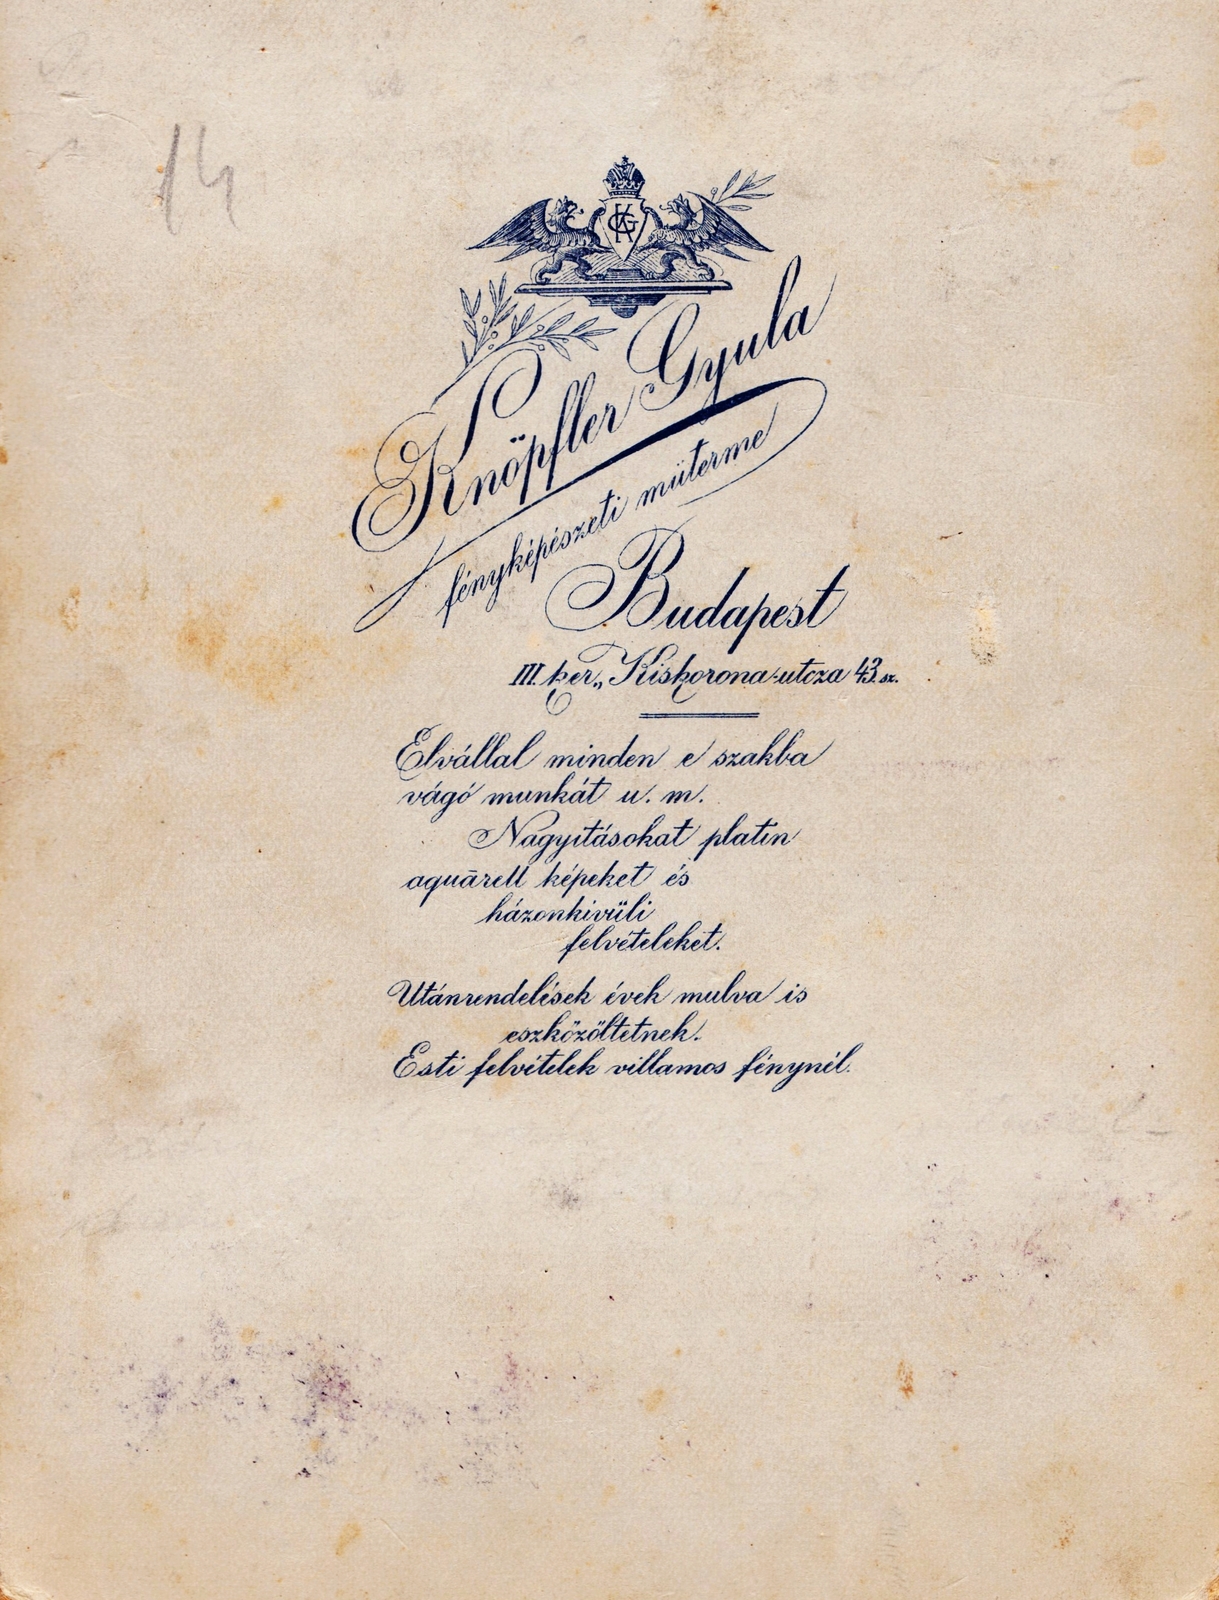 14
KG
Knöpfler Gyula
fényképészeti műterme
Budapest
III. ker., Kiskorona-utcza 43. sz.
Elvállal minden e szakba
vágó munkát u. m.
Nagyitásokat platin
aquärell képeket és
házonkivüli
felvételeket.
Utánrendelések évek mulva is
eszközöltetnek.
Esti felvételek villamos fénynél.